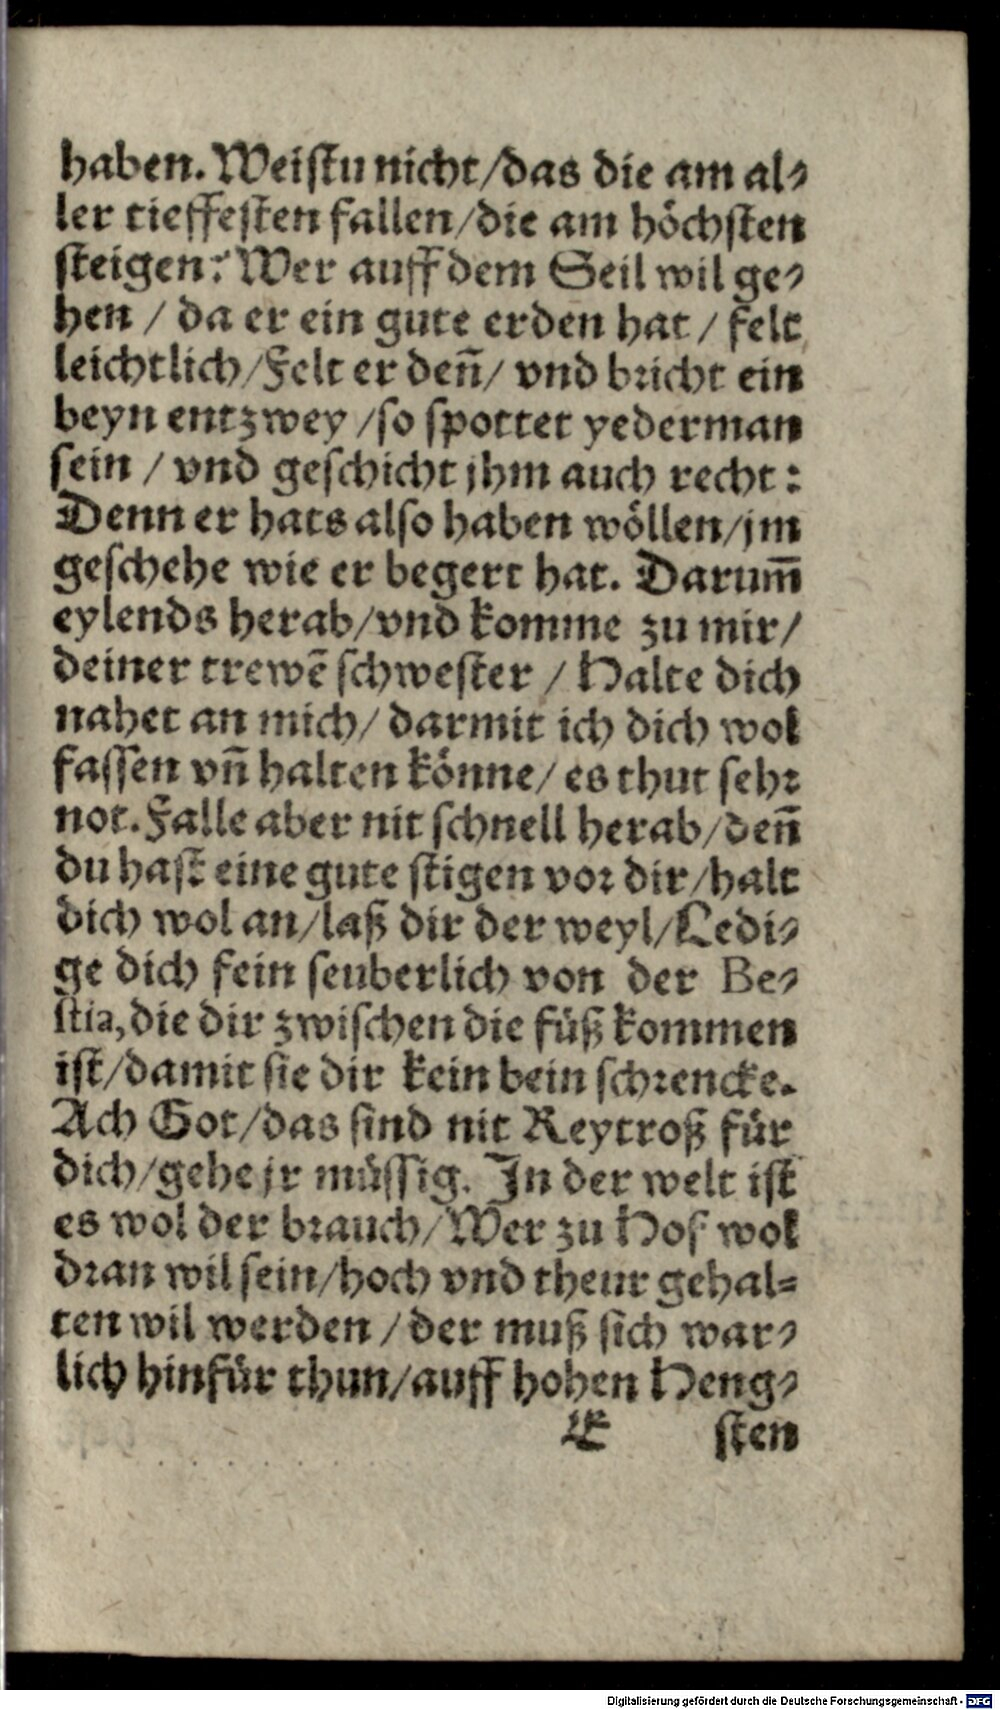 haben. Weiſtu nicht/das die am al⸗
ler tieffeſten fallen/die am höchſten
ſteigen? Wer auff dem Seil wil ge⸗
hen / da er ein gute erden hat / felt
leichtlich/Felt er deñ/ vnd bricht ein
beyn entzwey /ſo ſpottet yederman
ſein / vnd geſchicht jhm auch recht:
Denn er hats alſo haben wöllen/jm
geſchehe wie er begert hat. Darum̃
eylends herab/vnd komme zu mir/
deiner trewē ſchweſter / Halte dich
nahet an mich/ darmit ich dich wol
faſſen vñ halten könne/ es thut ſehꝛ
not. Falle aber nit ſchnell herab/deñ
du haſt eine gute ſtigen voꝛ dir/halt
dich wol an/laß dir der weyl/Ledi⸗
ge dich fein ſeuberlich von der Be⸗
ſtia, die dir zwiſchen die füß kommen
iſt/damit ſie dir kein bein ſchꝛencke.
Ach Got/das ſind nit Reytroß für
dich/gehe jr müſſig. In der welt iſt
es wol der bꝛauch/Wer zu Hof wol
dꝛan wil ſein/hoch vnd theur gehal⸗
ten wil werden / der muß ſich war⸗
lich hinfür thun/auff hohen Heng⸗
E ſten
Digitalisierung gefördert durch die Deutsche Forschungsgemeinschaft - DFG